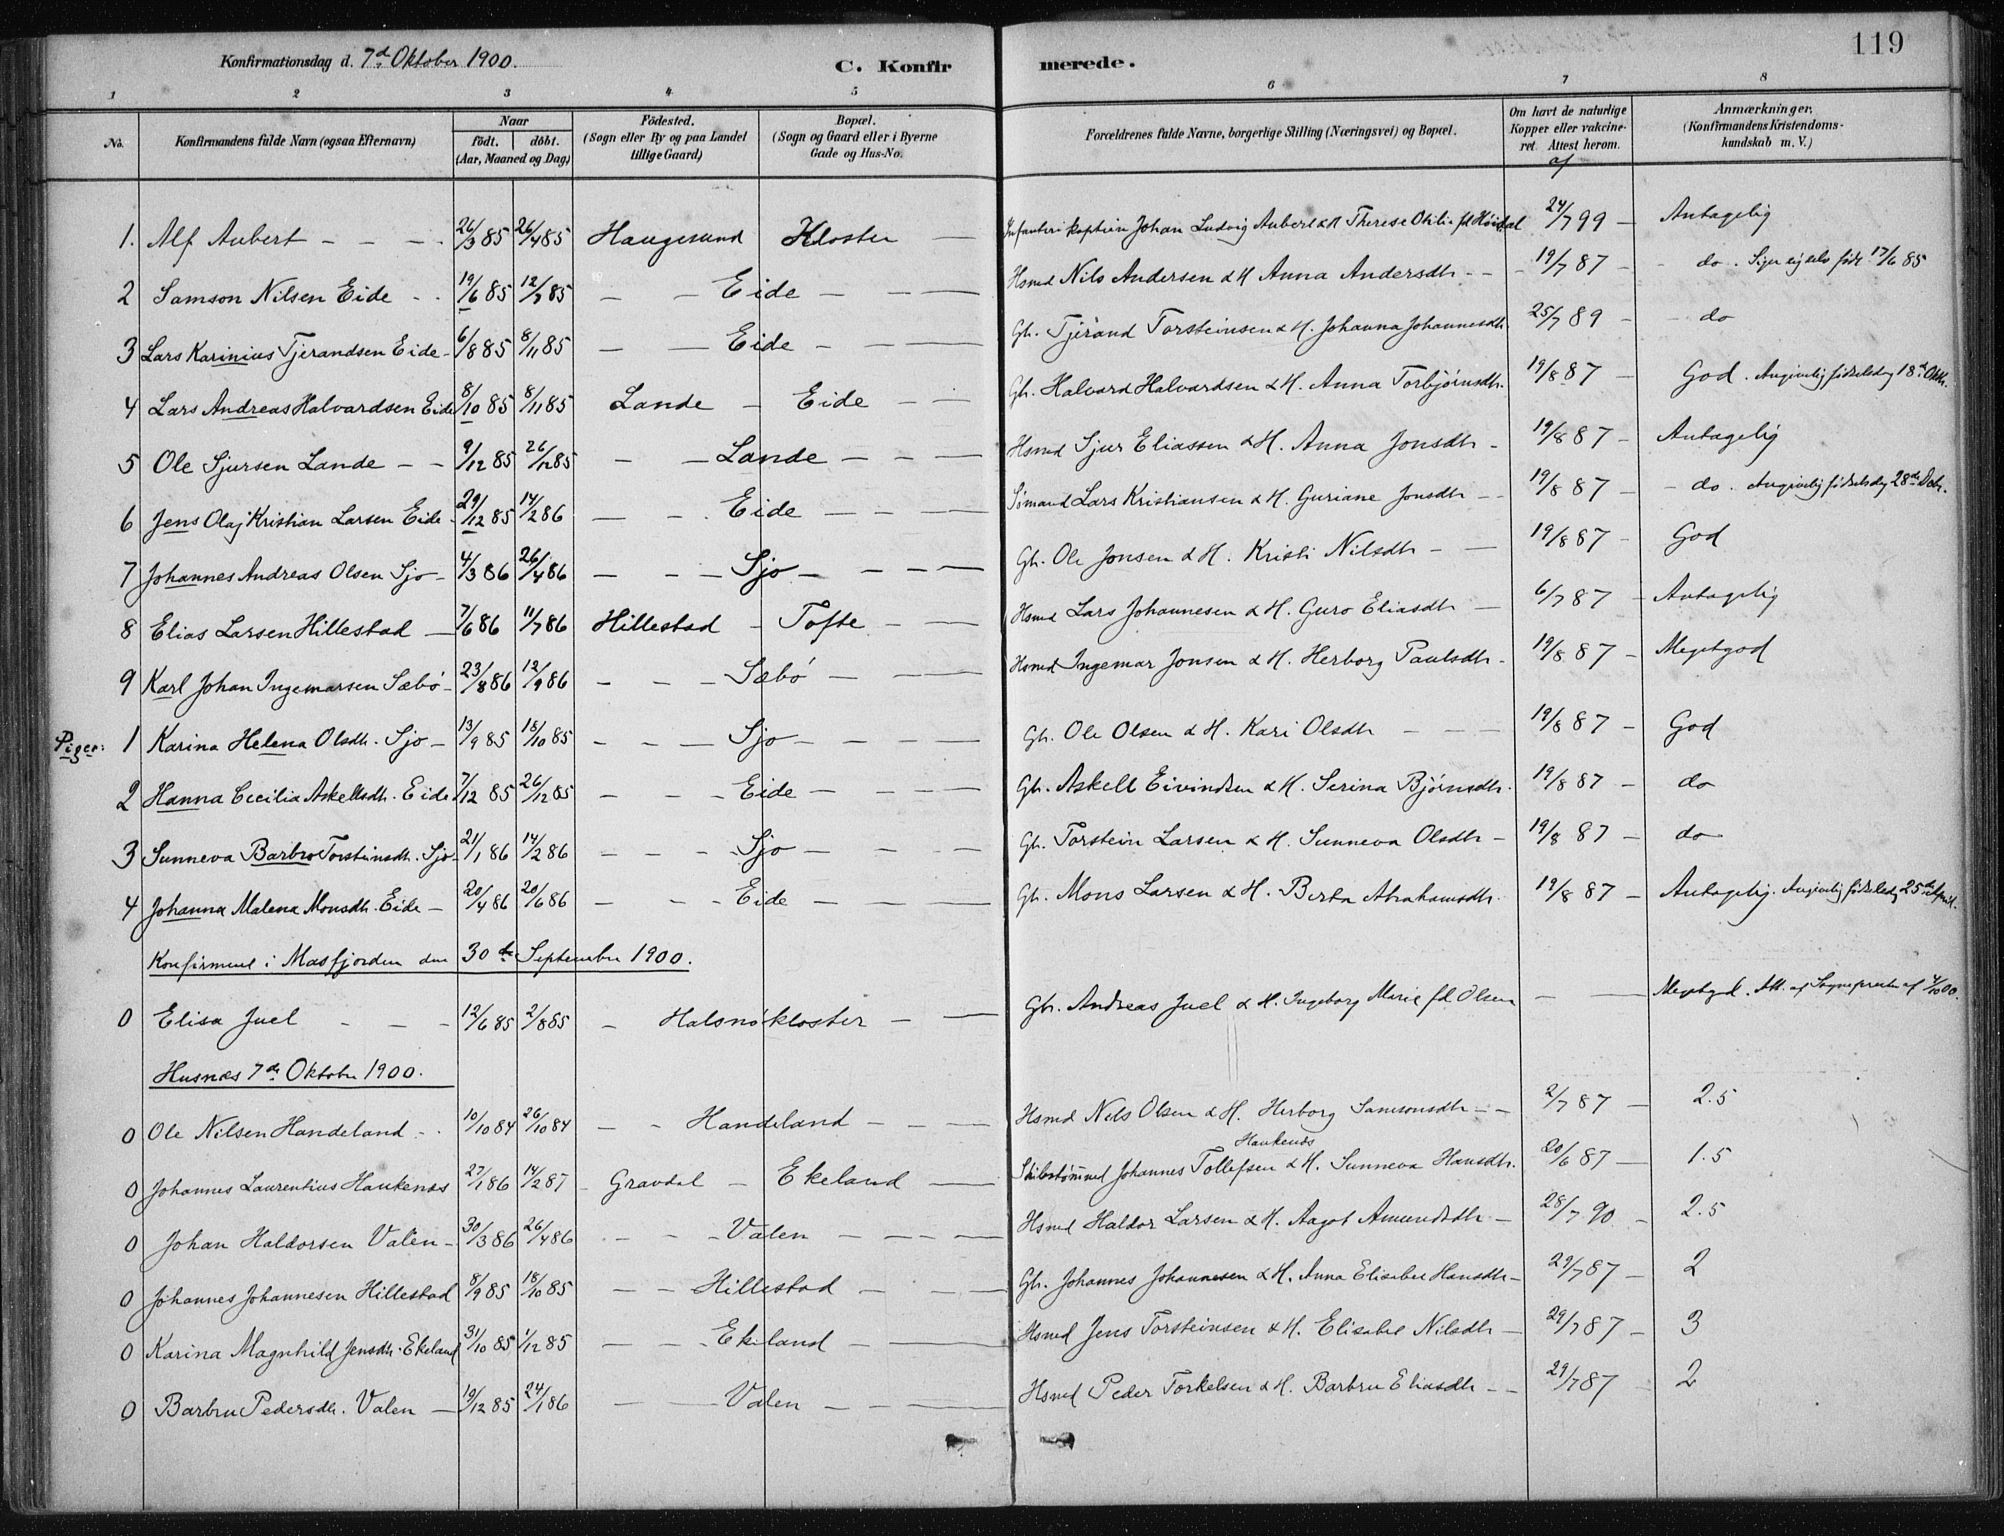 119
Konfirmationsdag d. 7de Oktober 1900. C. Konfirmerede.
1 2 3 4 5 6 7 8
No. Konfirmandens fulde Navn (ogsaa Efternavn) Naar født. døbt. (Aar, Maaned og Dag) Fødested. (Sogn eller By og paa Landet tillige Gaard) Bopæl. (Sogn og Gaard eller i Byerne Gade og Hus-No. Forældrenes fulde Navne, borgerlige Stilling (Næringsvei) og Bopæl. Om havt de naturlige Kopper eller vakcineret. Attest herom. af Anmærkninger. (Konfirmandens Kristendomskundskab m. V.)
1. Alf Aubert - - - 26/3 85 26/4 85 Haugesund Kloster — Infanterikaptein Johan Ludvig Aubert & H Therese Otilie fd 24/7 99 — Antagelig
2 Samson Nilsen Eide - - 19/6 85 12/7 85 — — Eide — — Hsmd Nils Andersen & H Anna Andersdtr - - 19/7 87 — - do. Siger sig selv født 17/6 85
3 Lars Karinius Tjerandsen Eide - 6/8 85 8/11 85 — — Eide — — Gbr. Tjerand Torsteinsen & H. Johanna Johannesdtr. 25/7 89 — - do
4 Lars Andreas Halvardsen Eide 8/10 85 8/11 85 Lande - Eide — — Gbr. Halvard Halvardsen & H. Anna Torbjørnsdtr. 19/8 87 — God. Angivelig fødselsdag 18de Oktb.
5 Ole Sjursen Lande - - 9/12 85 26/12 85 — — Lande — — Hsmd Sjur Eliassen & H. Anna Jonsdtr - 19/8 87 — Antagelig
6 Jens Olaj Kristian Larsen Eide - 29/12 85 14/2 86 — - Eide — — Sømand Lars Kristiansen & H. Guriane Jonsdtr - - 19/8 87 — - do. Angivelig fødselsdag 28de Decbr.
7 Johannes Andreas Olsen Sjo - 4/3 86 26/4 86 — — Sjo — — Gbr. Ole Jonsen & H. Kristi Nilsdtr - — 19/8 87 — God
8 Elias Larsen Hillestad — 7/6 86 11/7 86 Hillestad - Tofte — — Hsmd Lars Johannesen & H. Guro Eliasdtr — 6/7 87 — Antagelig
9 Karl Johan Ingemarsen Sæbø - 23/8 86 12/9 86 — — Sæbø — — Hsmd Ingemar Jonsen & H. Herborg Paulsdtr - 19/8 87 — Megetgod
Piger: 1 Karina Helena Olsdtr. Sjo - 13/9 85 18/10 85 — — Sjo — — Gbr. Ole Olsen & H. Kari Olsdtr — — 19/8 87 — God
2 Hanna Cecilia Askellsdtr. Eide 7/12 85 26/12 85 — — Eide — — Gbr. Askell Eivindsen & H. Serina Bjørnsdtr. 19/8 87 — do
3 Sunneva Barbro Torsteinsdtr. Sjo 21/1 86 14/2 86 — — Sjo — — Gbr. Torstein Larsen & H. Sunneva Olsdtr — 19/8 87 — do
4 Johanna Malena Monsdtr. Eide - 20/4 86 20/6 86 — — Eide — — Gbr. Mons Larsen & H. Berta Abrahamsdtr. 19/8 87 — Antagelig. Angivelig fødselsdag 25de April.
Konfirmeret i Masfjorden den 30te September 1900.
0 Elisa Juel - - - 12/6 85 2/8 85 - Halsnøkloster — — Gbr. Andreas Juel & H. Ingeborg Marie fd. Olsen — — Megetgd. Att. af Sognepresten af 4/10 00.
Husnæs 7de Oktober 1900.
0 Ole Nilsen Handeland - - 10/10 84 26/10 84 — - Handeland — — Hsmd Nils Olsen & H. Herborg Samsonsdtr - - 2/7 87 — 2.5
0 Johannes Laurentius Haukenæs 27/1 86 14/2 87 - Gravdal - Ekeland — Johannes Tollefsen Haukenæs & H. Sunneva Hansdtr. 20/6 87 — 1.5
0 Johan Haldorsen Valen - 30/3 86 26/4 86 — — Valen — — Hsmd Haldor Larsen & H. Aagot Amundsdtr — 28/7 90 - 2.5
0 Johannes Johannesen Hillestad 8/9 85 18/10 85 — — Hillestad — — Gbr. Johannes Johannesen & H. Anna Elisabet Hansdtr - 29/7 87 — 2
0 Karina Magnhild Jensdtr. Ekeland 31/10 85 1/12 85 — — Ekeland — — Hsmd Jens Torsteinsen & H. Elisabet Nilsdtr — 29/7 87 — 3
0 Barbru Pedersdtr. Valen — 19/12 85 24/1 86 — — Valen — — Hsmd Peder Torkelsen & H. Barbru Eliasdtr - - 29/7 87 — 2